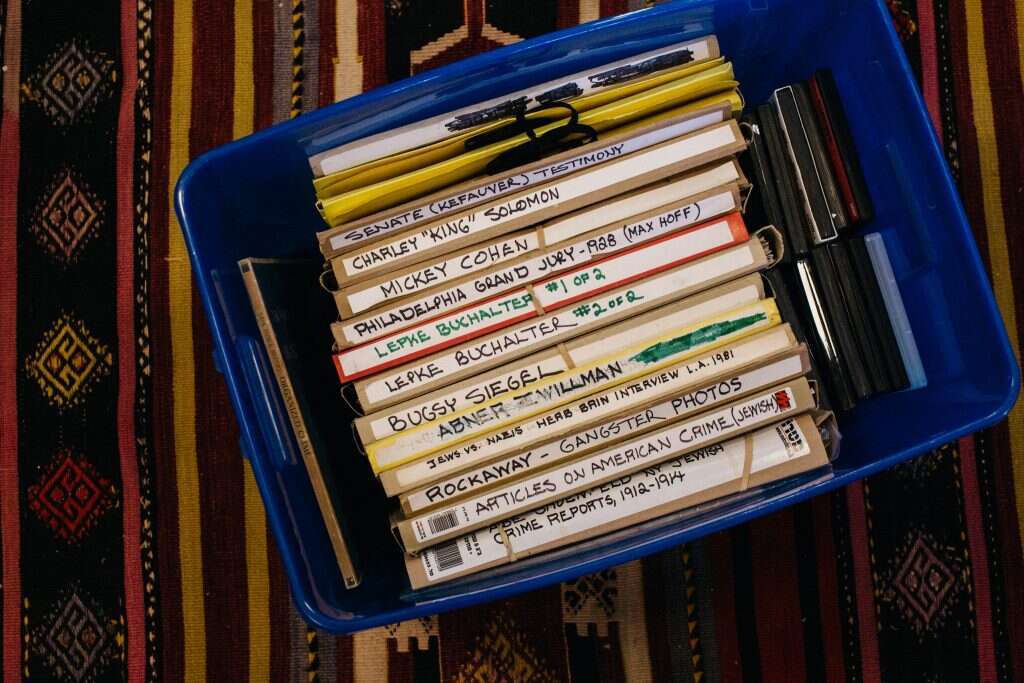 SENATE (KEFAUVER) TESTIMONY
CHARLEY "KING" SOLOMON
MICKEY COHEN
PHILADELPHIA GRAND JURY-1928 (MAX HOFF)
LEPKE BUCHALTER #1 OF 2
LEPKE BUCHALTER #2 OF 2
BUGSY SIEGEL
ABNER ZWILLMAN
JEWS VS. NAZIS - HERB BRIN INTERVIEW L.A. 1981
ROCKAWAY - GANGSTER PHOTOS
ARTICLES ON AMERICAN CRIME (JEWISH)
JEWISH
CRIME REPORTS, 1912-1914